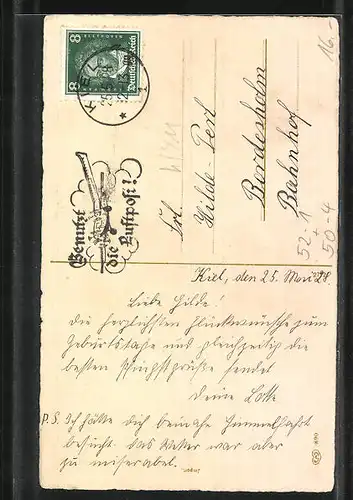 8 BEETHOVEN 8
Deutsches Reich
KIEL
1
Benutzt
die Luftpost!
16.-
Frl.
Hilde Perl
Bordesholm
Bahnhof
52-1
+
50-4
Kiel, den 25. Mai 28.
Liebe Hilde!
Die herzlichsten Glückwünsche zum
Geburtstage und gleichzeitig die
besten Pfingstgrüße sendet
Deine Lotte
P.S. Ich hätte dich beinahe Himmelfahrt
besucht. das Wetter war aber
zu miserabel.